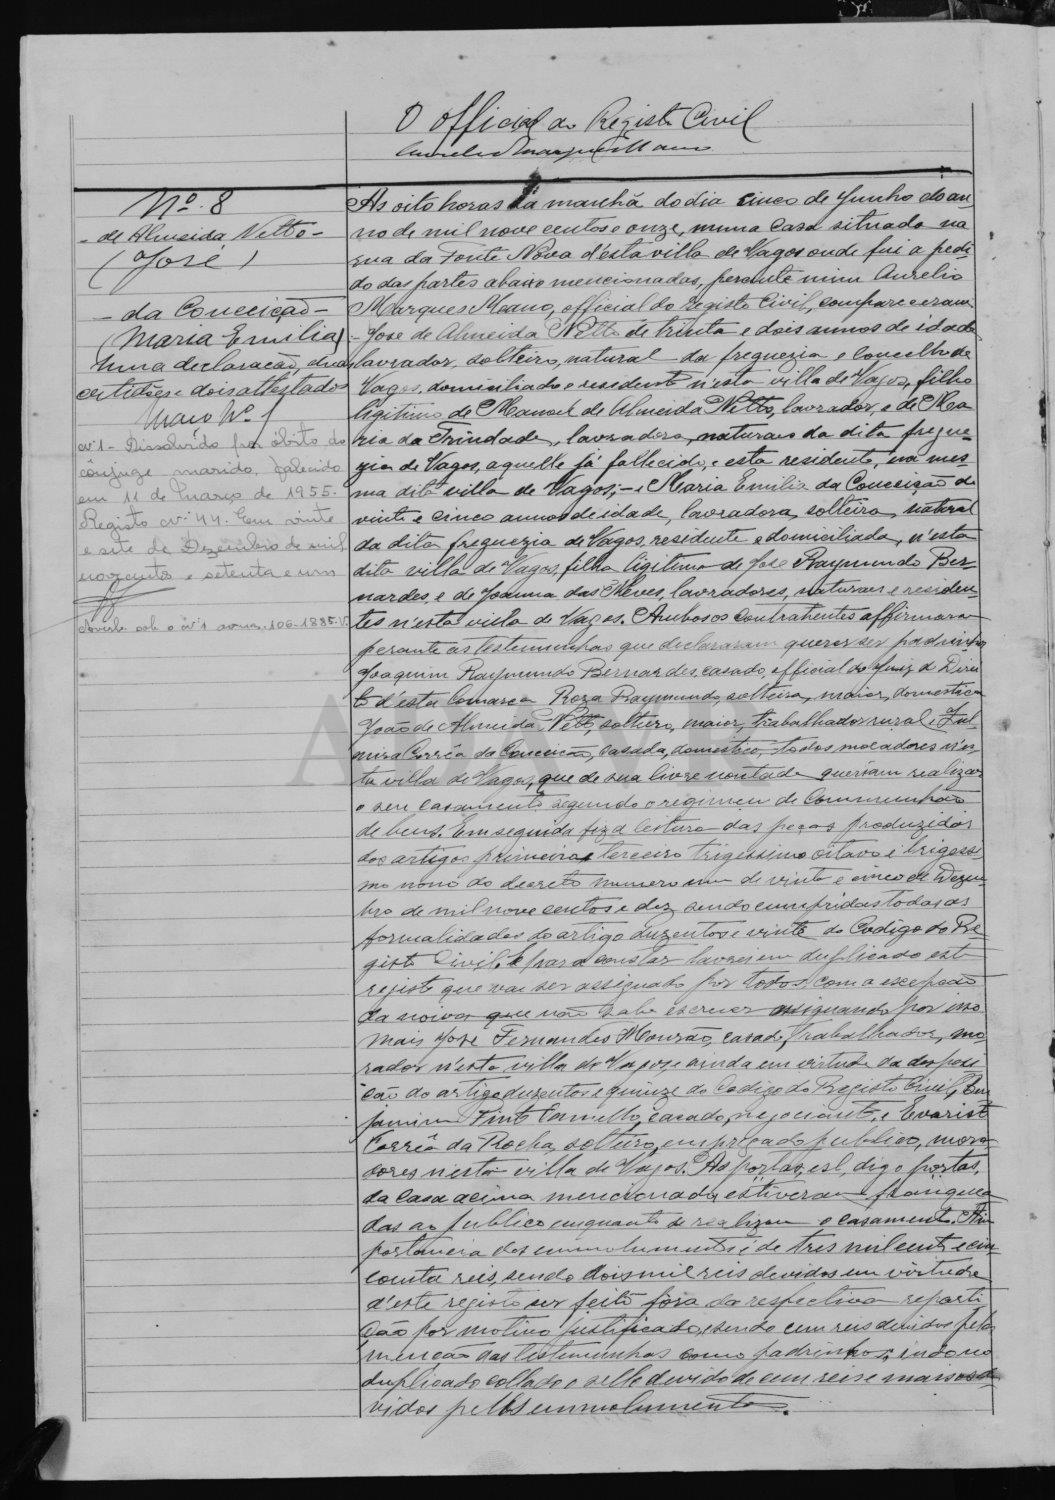 O official do Registo Civil
Aurelio Marques Mano
Nº 8
- de Almeida Netto -
(José)
- da Conceição -
(Maria Emilia)
Uma declaração, duas
certidões e dois attestados
Maço Nº 1
Nº 1 - Dissolvido por óbito do
cônjuge marido, falecido
em 11 de Março de 1955.
Registo nº 44. Em vinte
e sete de Dezembro de mil
novecentos e setenta e um
Averb. sob o nº 1
As oito horas da manhã do dia cinco de Junho do an-
no de mil nove centos e onze, numa casa situada na
rua da Fonte Nova d'esta villa de Vagos onde fui a pedi-
do das partes abaixo mencionadas, perante mim Aurelio
Marques Mano, official do registo Civil, compareceram
- José de Almeida Netto de trinta e dois annos de idade
lavrador, solteiro, natural da freguezia e concelho de
Vagos, domiciliado e residente n'esta villa de Vagos, filho
ligitimo de Manoel de Almeida Netto, lavrador, e de Ma-
ria da Trindade, lavradora, naturaes da dita fregue-
zia de Vagos, aquelle já fallecido, e esta residente, na mes-
ma dita villa de Vagos; - e Maria Emilia da Conceição de
vinte e cinco annos de idade, lavradora, solteira, natural
da dita freguezia de Vagos, residente e domiciliada, n'esta
dita villa de Vagos, filha ligitima de José Raymundo Ber-
nardes, e de Joanna das Neves, lavradores, naturaes e residen-
tes n'esta villa de Vagos. Ambos os contrahentes affirmaram
perante as testemunhas que declararam querer ser padrinhos
Joaquim Raymundo Bernardes, casado, official do Juiz de Direi-
to d'esta Comarca Roza Raymundo, solteira, maior, domestica
João de Almeida Netto, solteiro, maior, trabalhador rural e Zul-
mira Corrêa da Conceição, casada, domestica, todos moradores n'es-
ta villa de Vagos, que de sua livre vontade queriam realizar
o seu casamento segundo o regimen de Communhão
de bens. Em seguida fiz a leitura das peças produzidas
dos artigos primeiro, terceiro trigessimo oitavo e trigessi-
mo nono do decreto numero um de vinte e cinco de Dezem-
bro de mil nove centos e dez, sendo cumpridas todas as
formalidades do artigo duzentos e vinte do Codigo do Re-
gisto Civil. E para constar lavrei em duplicado este
registo que vae ser assignado por todos, com a excepção
da noiva que não sabe escrever assignando por isso
mais José Fernandes Mourão, casado, trabalhador, mo-
rador n'esta villa de Vagos e ainda em virtude da desposi-
ção do artigo duzentos e quinze do Codigo do Registo Civil, Ben-
jamim Pinto Camello, casado, negociante, e Evaristo
Corrêa da Rocha, solteiro, empregado publico, mora-
dores n'esta villa de Vagos. As portas, esl, digo portas,
da casa acima mencionada estiveram franquea-
das ao publico emquanto se realizou o casamento. A im-
portancia dos emmolumentos é de tres mil cento e cin-
coenta reis, sendo dois mil reis devidos em virtude
d'este registo ser feito fora da respectiva reparti-
ção por motivo justificado, e sendo cem reis devidos pela
menção das testemunhas como padrinhos; sendo no
duplicado collado o sello devido de cem reis e mais os de-
vidos pelos emmolumentos.